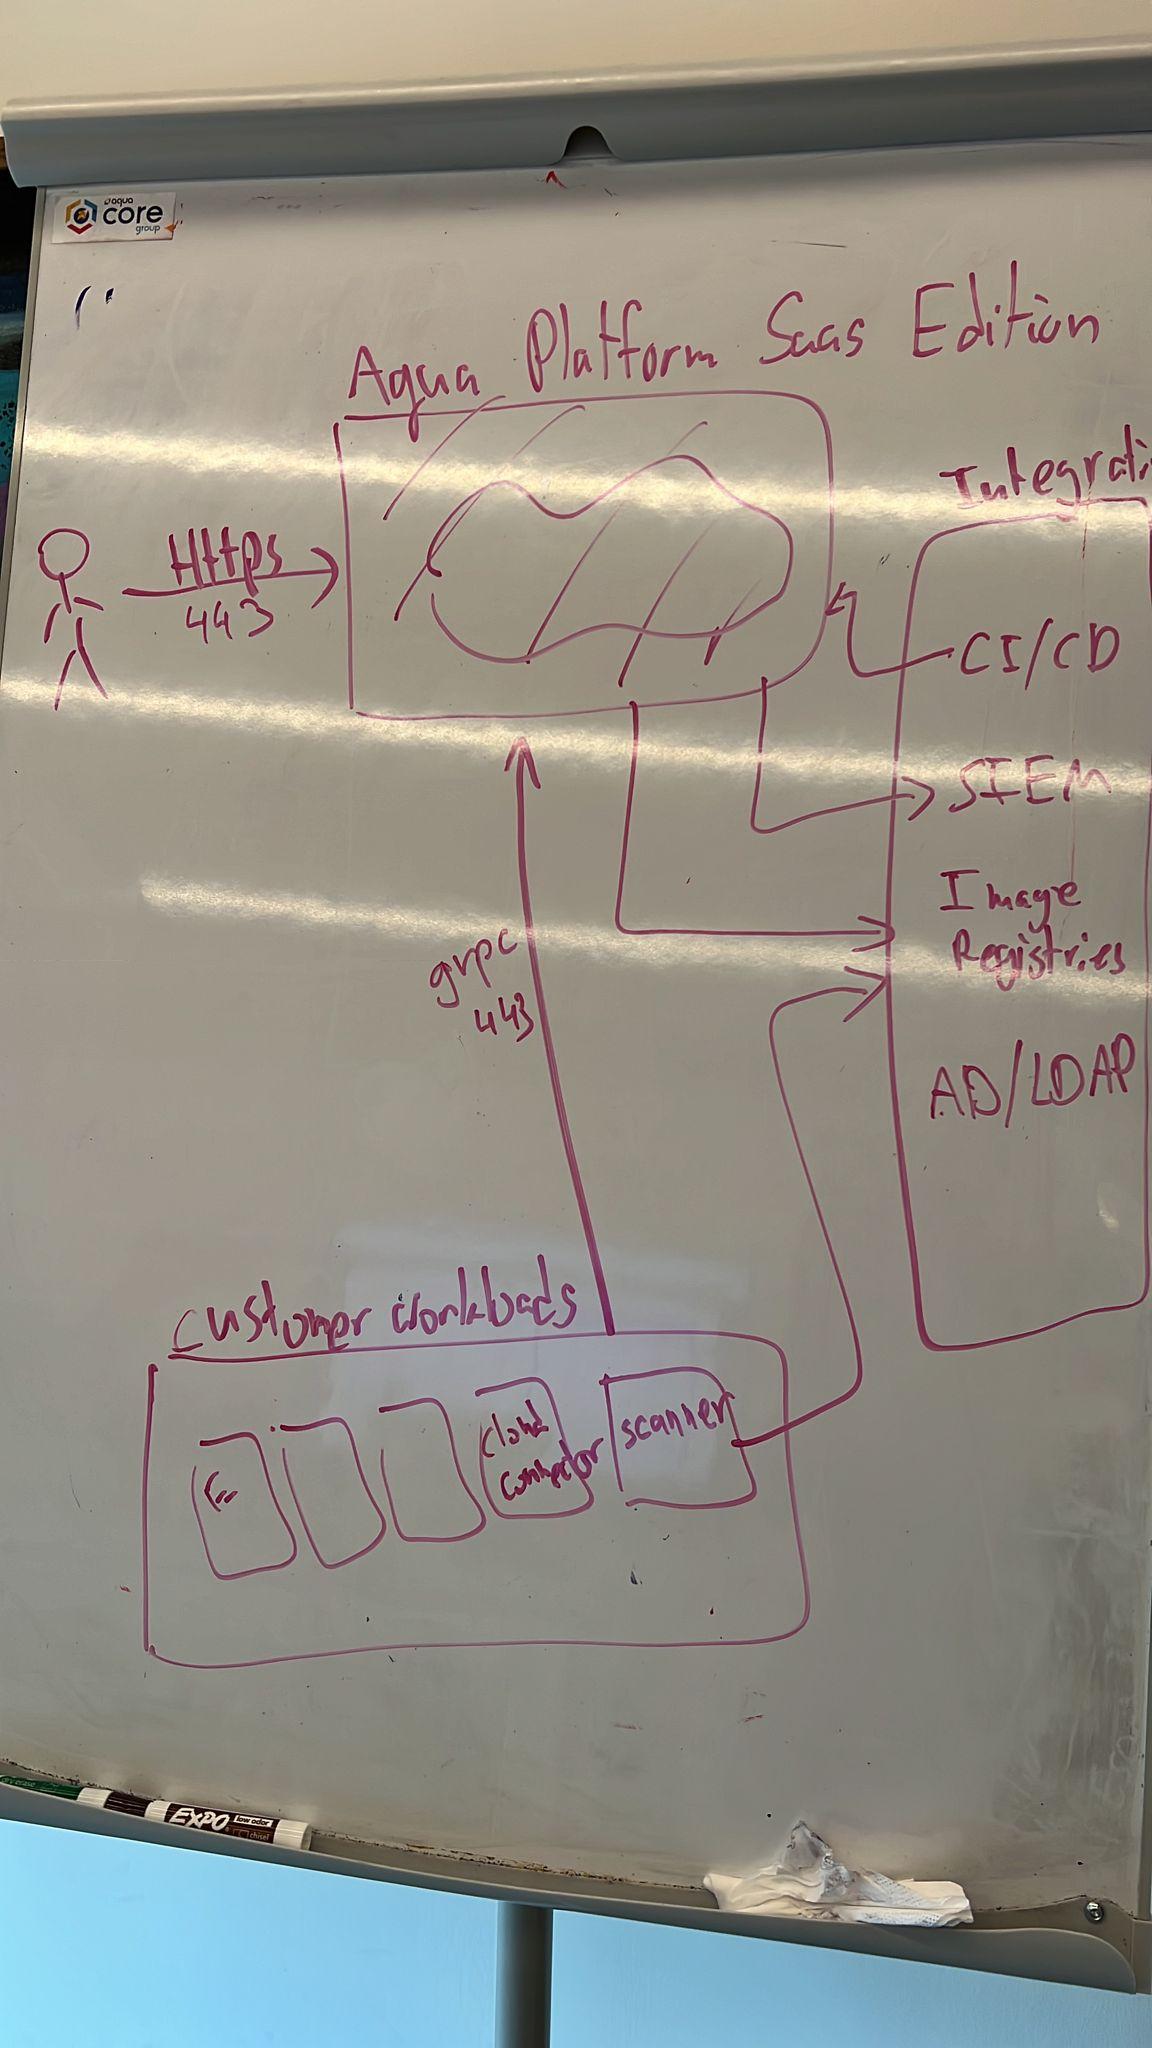 aqua
core
group
Aqua Platform Saas Edition
Integrati
Https
443
CI/CD
SIEM
Image
Registries
grpc
443
AD/LDAP
customer workloads
cloud
connector
scanner
EXPO
low odor
chisel